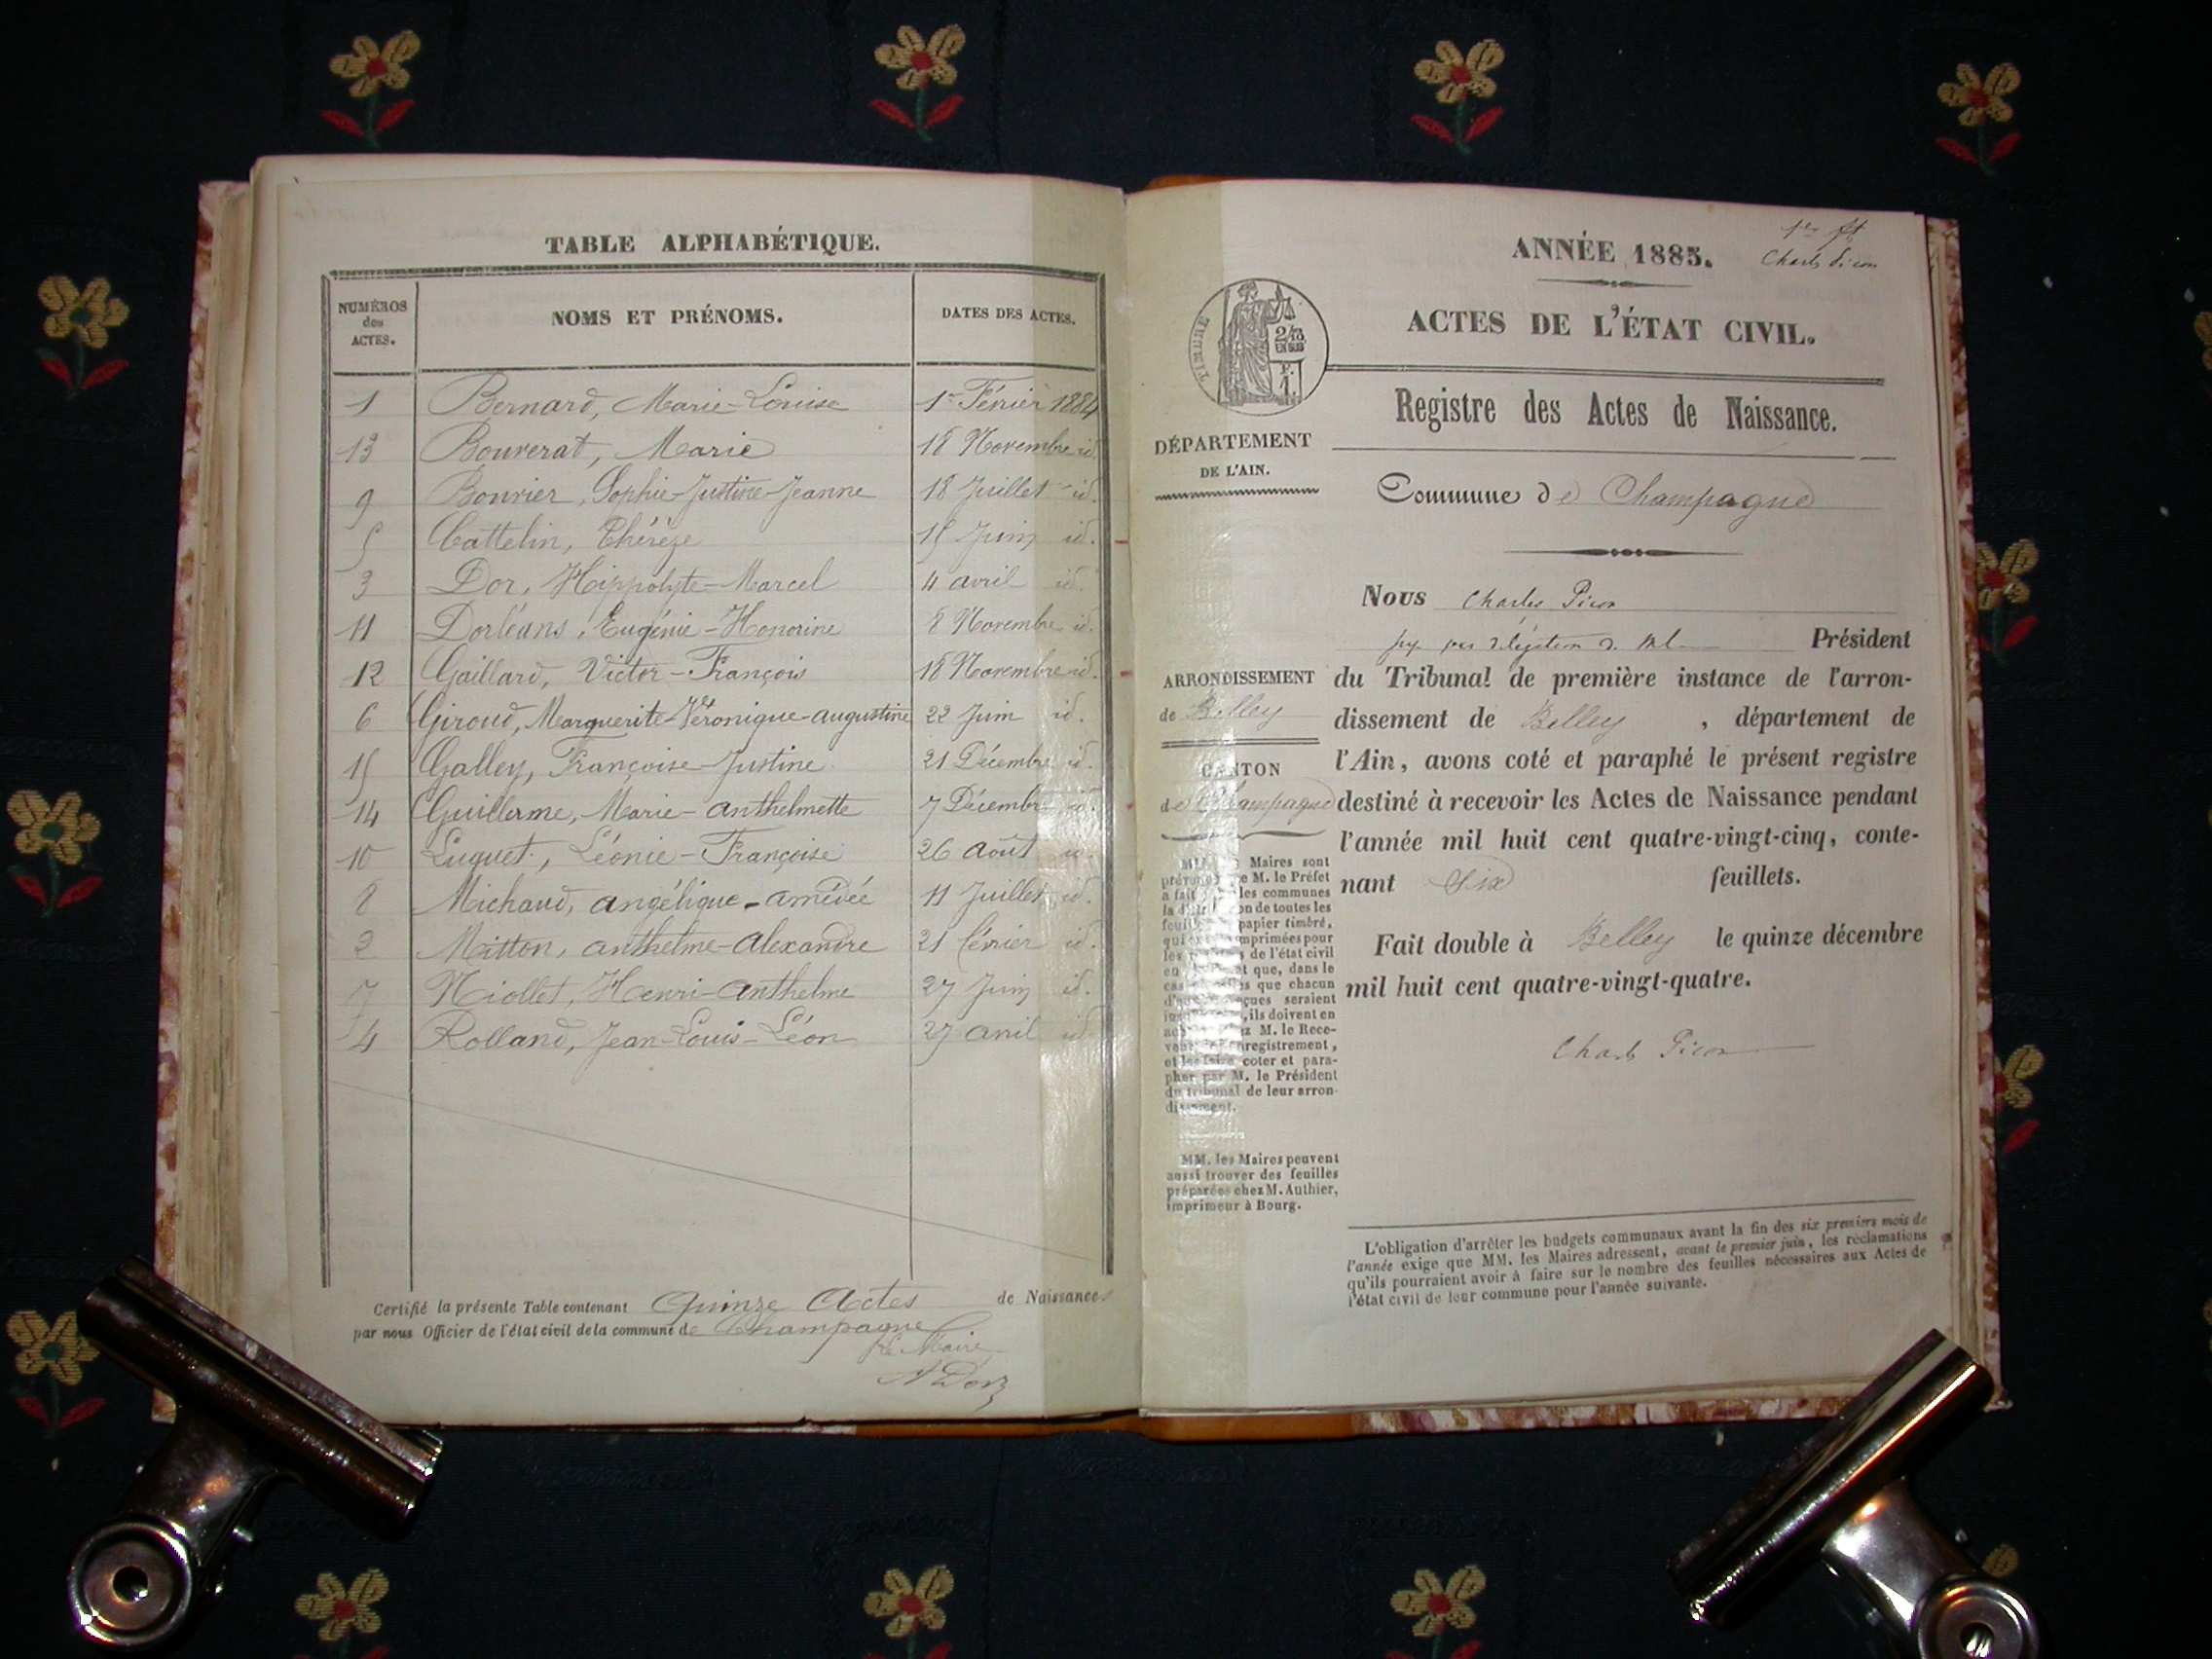 TABLE ALPHABÉTIQUE.
NUMÉROS des ACTES. NOMS ET PRÉNOMS. DATES DES ACTES.
1 Bernard, Marie-Louise 1er Févrièr 1884
13 Bouverat, Marie 18 Novembre id.
9 Bouvier, Sophie-Justine-Jeanne 18 Juillet id.
5 Cattelin, Thérèze 15 Juin id.
3 Dor, Hippolyte-Marcel 4 avril id.
11 Dorléans, Eugénie-Honorine 8 Novembre id.
12 Gaillard, Victor-François 18 Novembre id.
6 Giroud, Marguerite-Véronique-augustine 22 Juin id.
15 Galley, Françoise-Justine 21 Décembre id.
14 Guillerme, Marie-anthelmette 7 Décembre id.
10 Luguet, Léonie-Françoise 26 août id.
8 Michaud, angélique-amédée 11 Juillet id.
2 Mitton, anthelme-alexandre 21 février id.
7 Niollet, Henri-anthelme 27 Juin id.
4 Rolland, Jean-Louis-Léon 27 avril id
Certifié la présente Table contenant Quinze Actes de Naissances
par nous Officier de l'état civil de la commune de Champagne
Le Maire
Dor
1er ft
Charles Picon
ANNÉE 1885.
ACTES DE L'ÉTAT CIVIL.
TIMBRE
2/10 EN SUS
F. 1
Registre des Actes de Naissance.
DÉPARTEMENT
DE L'AIN.
Commune de Champagne
Nous Charles Picon
par délégation Président
ARRONDISSEMENT
de Belley
du Tribunal de première instance de l'arron-
dissement de Belley, département de
l'Ain, avons coté et paraphé le présent registre
CANTON
de Champagne
destiné à recevoir les Actes de Naissance pendant
l'année mil huit cent quatre-vingt-cinq, conte-
nant Six feuillets.
Fait double à Belley le quinze décembre
mil huit cent quatre-vingt-quatre.
Charles Picon
Maires sont
M. le Préfet
a fait les communes
la de toutes les
papier timbré,
imprimées pour
les de l'état civil
et que, dans le
que chacun
seraient
ils doivent en
M. le Rece-
enregistrement,
et les faire coter et para-
pher par M. le Président
du tribunal de leur arron-
dissement.
MM. les Maires peuvent
aussi trouver des feuilles
préparées chez M. Authier,
imprimeur à Bourg.
L'obligation d'arrêter les budgets communaux avant la fin des six premiers mois de
l'année exige que MM. les Maires adressent, avant le premier juin, les réclamations
qu'ils pourraient avoir à faire sur le nombre des feuilles nécessaires aux Actes de
l'état civil de leur commune pour l'année suivante.